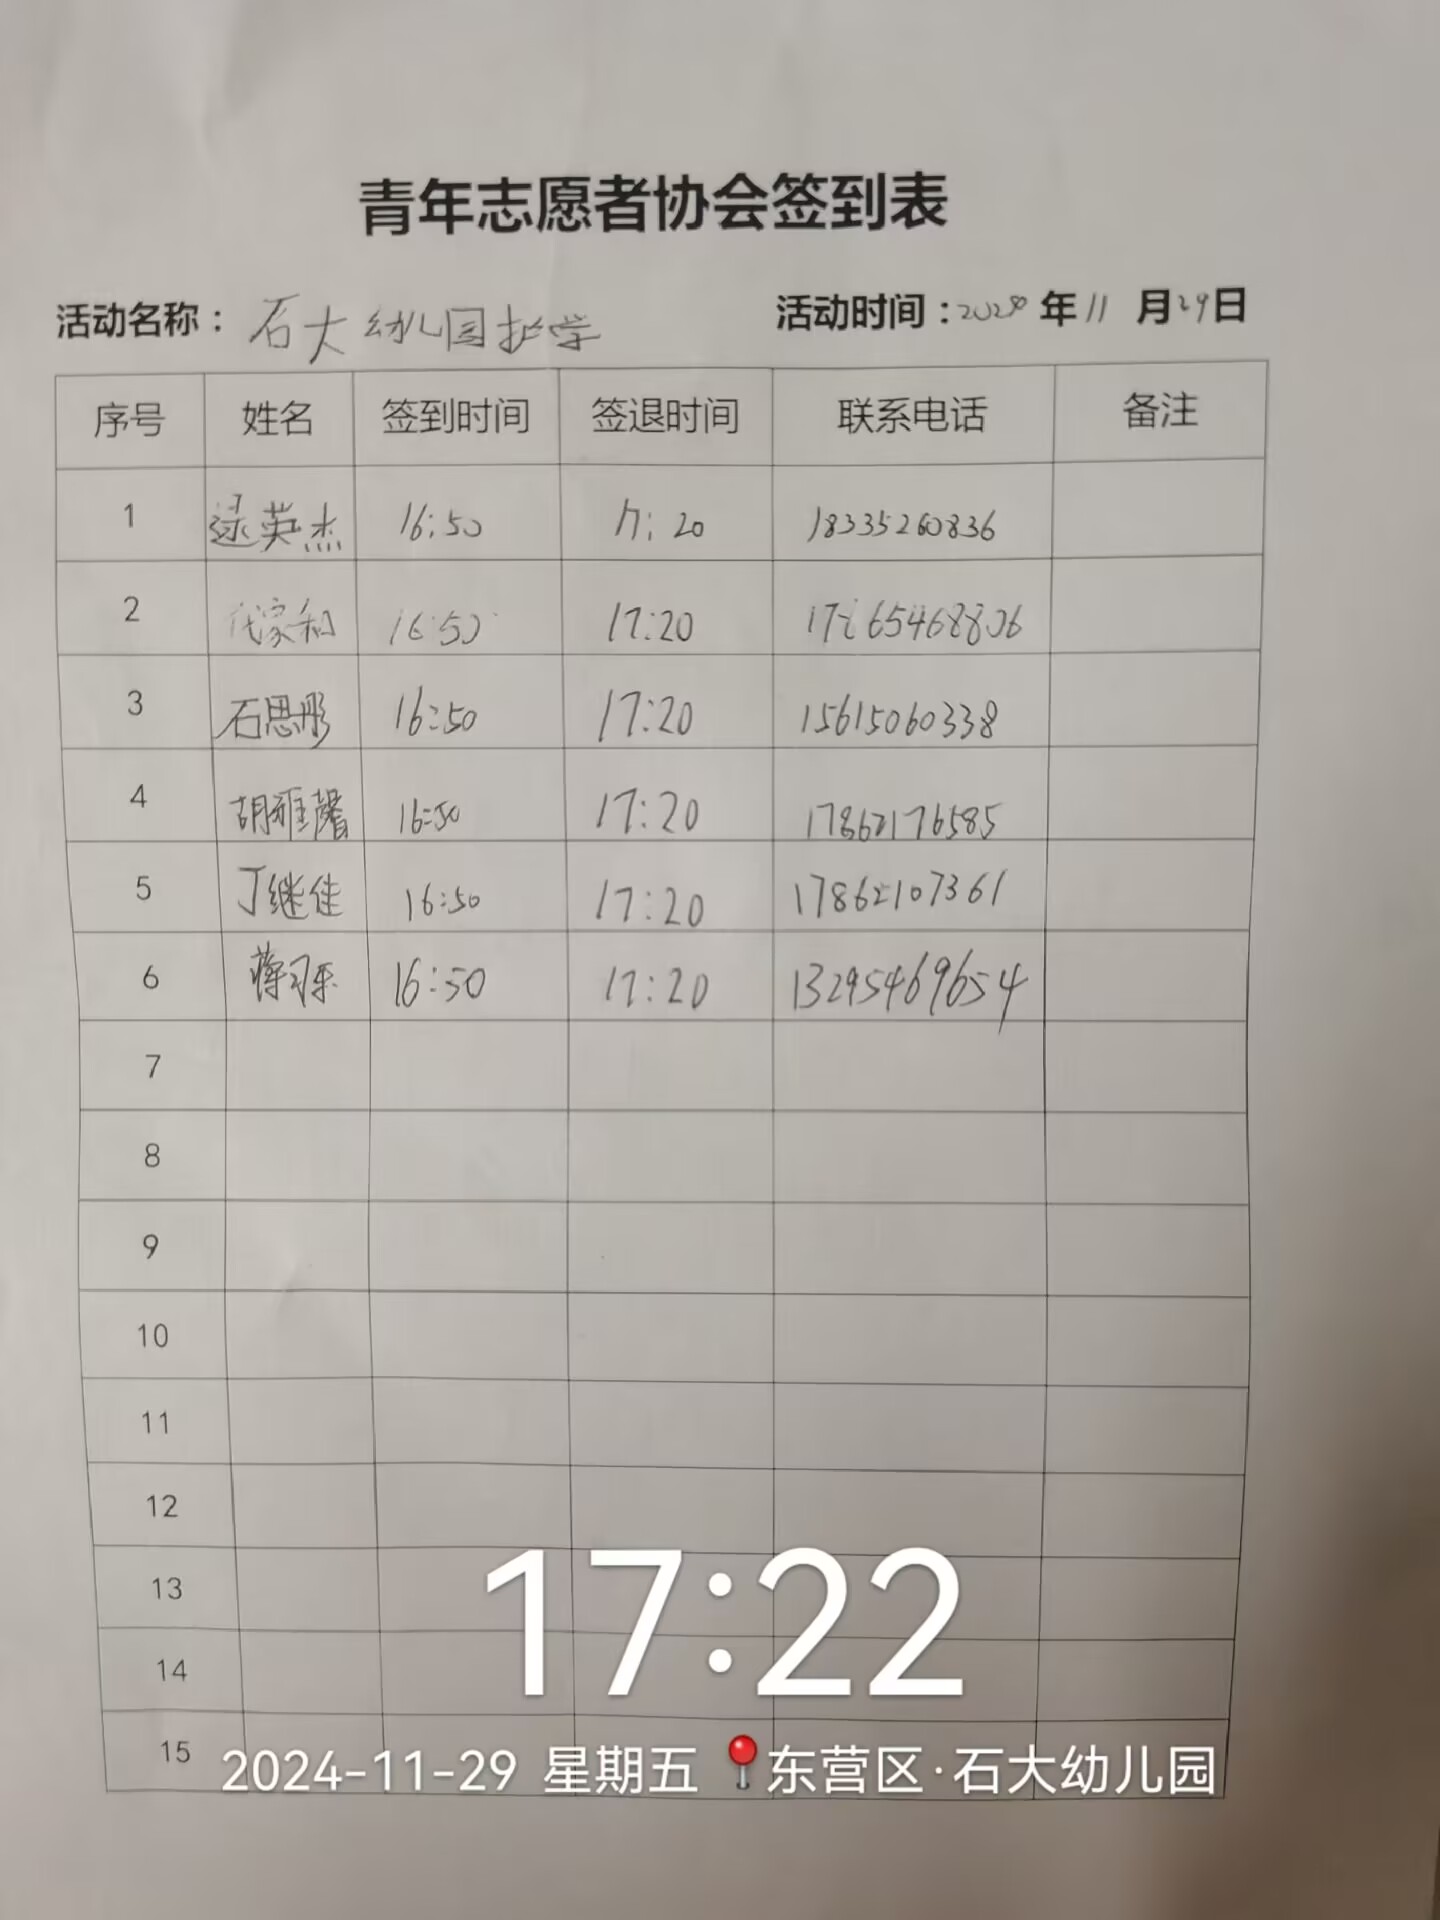 青年志愿者协会签到表
活动名称：石大幼儿园护学 活动时间：2024年11月29日
序号 姓名 签到时间 签退时间 联系电话 备注
1 逯英杰 16:50 17:20 18335260836
2 代家和 16:50 17:20
3 石思彤 16:50 17:20 15615060338
4 胡雅馨 16:50 17:20 17862176585
5 丁继佳 16:50 17:20 17862107361
6 16:50 17:20 13295469654
7
8
9
10
11
12
13
14
15
17:22
2024-11-29 星期五 东营区·石大幼儿园